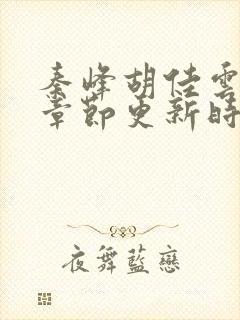 秦峰胡佳雲
章節更新時
夜舞藍戀